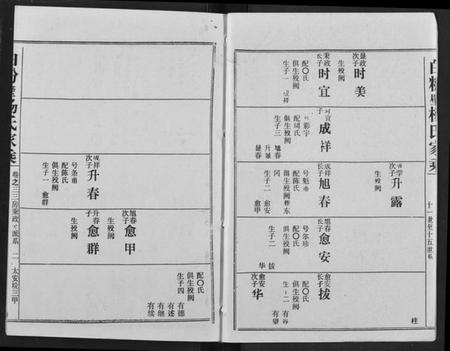 晟政次子 时美
生殁阙
秉政长子 时宜
配〇氏
俱生殁阙
生子一 成祥
时宜子 成祥
字
配周氏
俱生殁阙
生子三 旭春 升春 晟春
学次子 升露
生殁阙
成祥长子 旭春
号魁
配陈氏
俱生殁阙
生子二 愈安 愈甲
旭春长子 愈安
号尔珍
配〇氏
俱生殁阙
生子二 拔 华
愈安长子 拔
配〇氏
俱生殁阙
生子二 有 有望
愈安次子 华
十一世至十五世系
桂
成祥次子 升春
号条甫
配陈氏
俱生殁阙
生子一 愈群
旭春次子 愈甲
生殁阙
升春子 愈群
生殁阙
配〇氏
俱生殁阙
生子四 有德 有述 有继 有续
卷之三 三房秉政派系 二 太安垸三甲